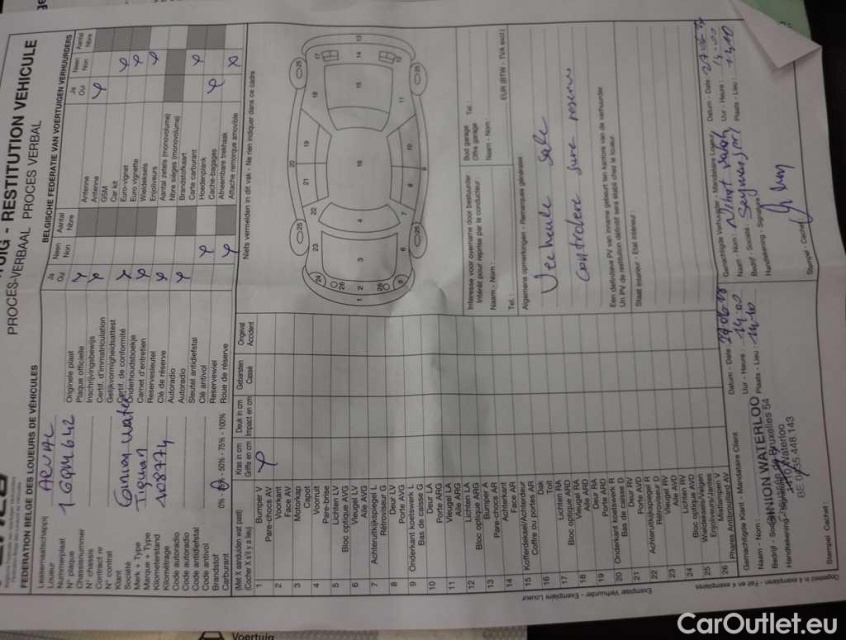 RESTITUTION VEHICULE
PROCES-VERBAAL PROCES VERBAL
FEDERATION BELGE DES LOUEURS DE VÉHICULES
BELGISCHE FEDERATIE VAN VOERTUIGEN VERHUURDERS
Loueur
ARVAL
Nummerplaat
N° plaque
Chassisnummer
N° chassis
Contract nr
N° contrat
Klant
Société
Merk + Type
Marque + Type
Tiguan
Kilometerstand
Kilométrage
108774
Code autoradio
Code autoradio
Code antidiefstal
Code antivol
Brandstof
Carburant
0% - 50% - 75% - 100%
Originele plaat
Plaque officielle
Inschrijvingsbewijs
Certif. d'immatriculation
Gelijkvormigheidsattest
Certif. de conformité
Onderhoudsboekje
Carnet d'entretien
Reservesleutel
Clé de réserve
Autoradio
Autoradio
Sleutel antidiefstal
Clé antivol
Reservewiel
Roue de réserve
Ja Neen Aantal
Oui Non Nbre
Antenne
Antenne
GSM
Car kit
Euro-vignet
Euro vignette
Wieldeksels
Enjoliveurs
Aantal zetels (monovolume)
Nbre sièges (monovolume)
Brandstofkaart
Carte carburant
Hoedenplank
Cache-bagages
Afneembare trekhaak
Attache remorque amovible
Ja Neen Aantal
Oui Non Nbre
(Met X aanduiden wat past)
(Cocher X s'il y a lieu)
Kras in cm
Griffe en cm
Deuk in cm
Impact en cm
Gebarsten
Cassé
Ongeval
Accident
Niets vermelden in dit vak - Ne rien indiquer dans ce cadre
1 Bumper V
Pare-choc AV
2 Voorkant
Face AV
3 Motorkap
Capot
4 Voorruit
Pare-brise
5 Lichten LV
Bloc optique AVG
6 Vleugel LV
Aile AVG
7 Achteruitkijkspiegel L
Rétroviseur G
8 Deur LV
Porte AVG
9 Onderkant koetswerk L
Bas de caisse G
10 Deur LA
Porte ARG
11 Vleugel LA
Aile ARG
12 Lichten LA
Bloc optique ARG
13 Bumper A
Pare-choc AR
14 Achterkant
Face AR
15 Kofferdeksel/Achterdeur
Coffre ou portes AR
16 Dak
Toit
17 Lichten RA
Bloc optique ARD
18 Vleugel RA
Aile ARD
19 Deur RA
Porte ARD
20 Onderkant koetswerk R
Bas de caisse D
21 Deur RV
Porte AVD
22 Achteruitkijkspiegel R
Rétroviseur D
23 Vleugel RV
Aile AVD
24 Lichten RV
Bloc optique AVD
25 Wieldeksel/Velgen
Enjoliveurs/Jantes
26 Mistlampen V
Phares Antibrouillard AV
Interesse voor overname door bestuurder
Intérêt pour reprise par le conducteur
Naam - Nom :
Tel. :
Bod garage
Offre garage
Tel. :
Naam - Nom :
EUR (BTW - TVA excl.)
Algemene opmerkingen - Remarques générales
Vehicule sale
controlere sure reserve
Een definitieve PV van inname gebeurt ten kantore van de verhuurder
Un PV de restitution définitif sera établi chez le loueur
Staat interieur - Etat interieur :
Gemachtigde Klant - Mandataire Client
Naam - Nom :
Bedrijf - Société :
Handtekening - Signature
UNION WATERLOO
Bruxelles 54
Waterloo
Datum - Date :
Uur - Heure : 14.00
Plaats - Lieu :
Stempel - Cachet :
Gemachtigde Verhuurder - Mandataire Loueur
Naam - Nom :
Bedrijf - Société :
Handtekening - Signature
Datum - Date :
Uur - Heure :
Plaats - Lieu :
Stempel - Cachet :
Exemplaar Verhuurder - Exemplaire Loueur
Voertuig
CarOutlet.eu